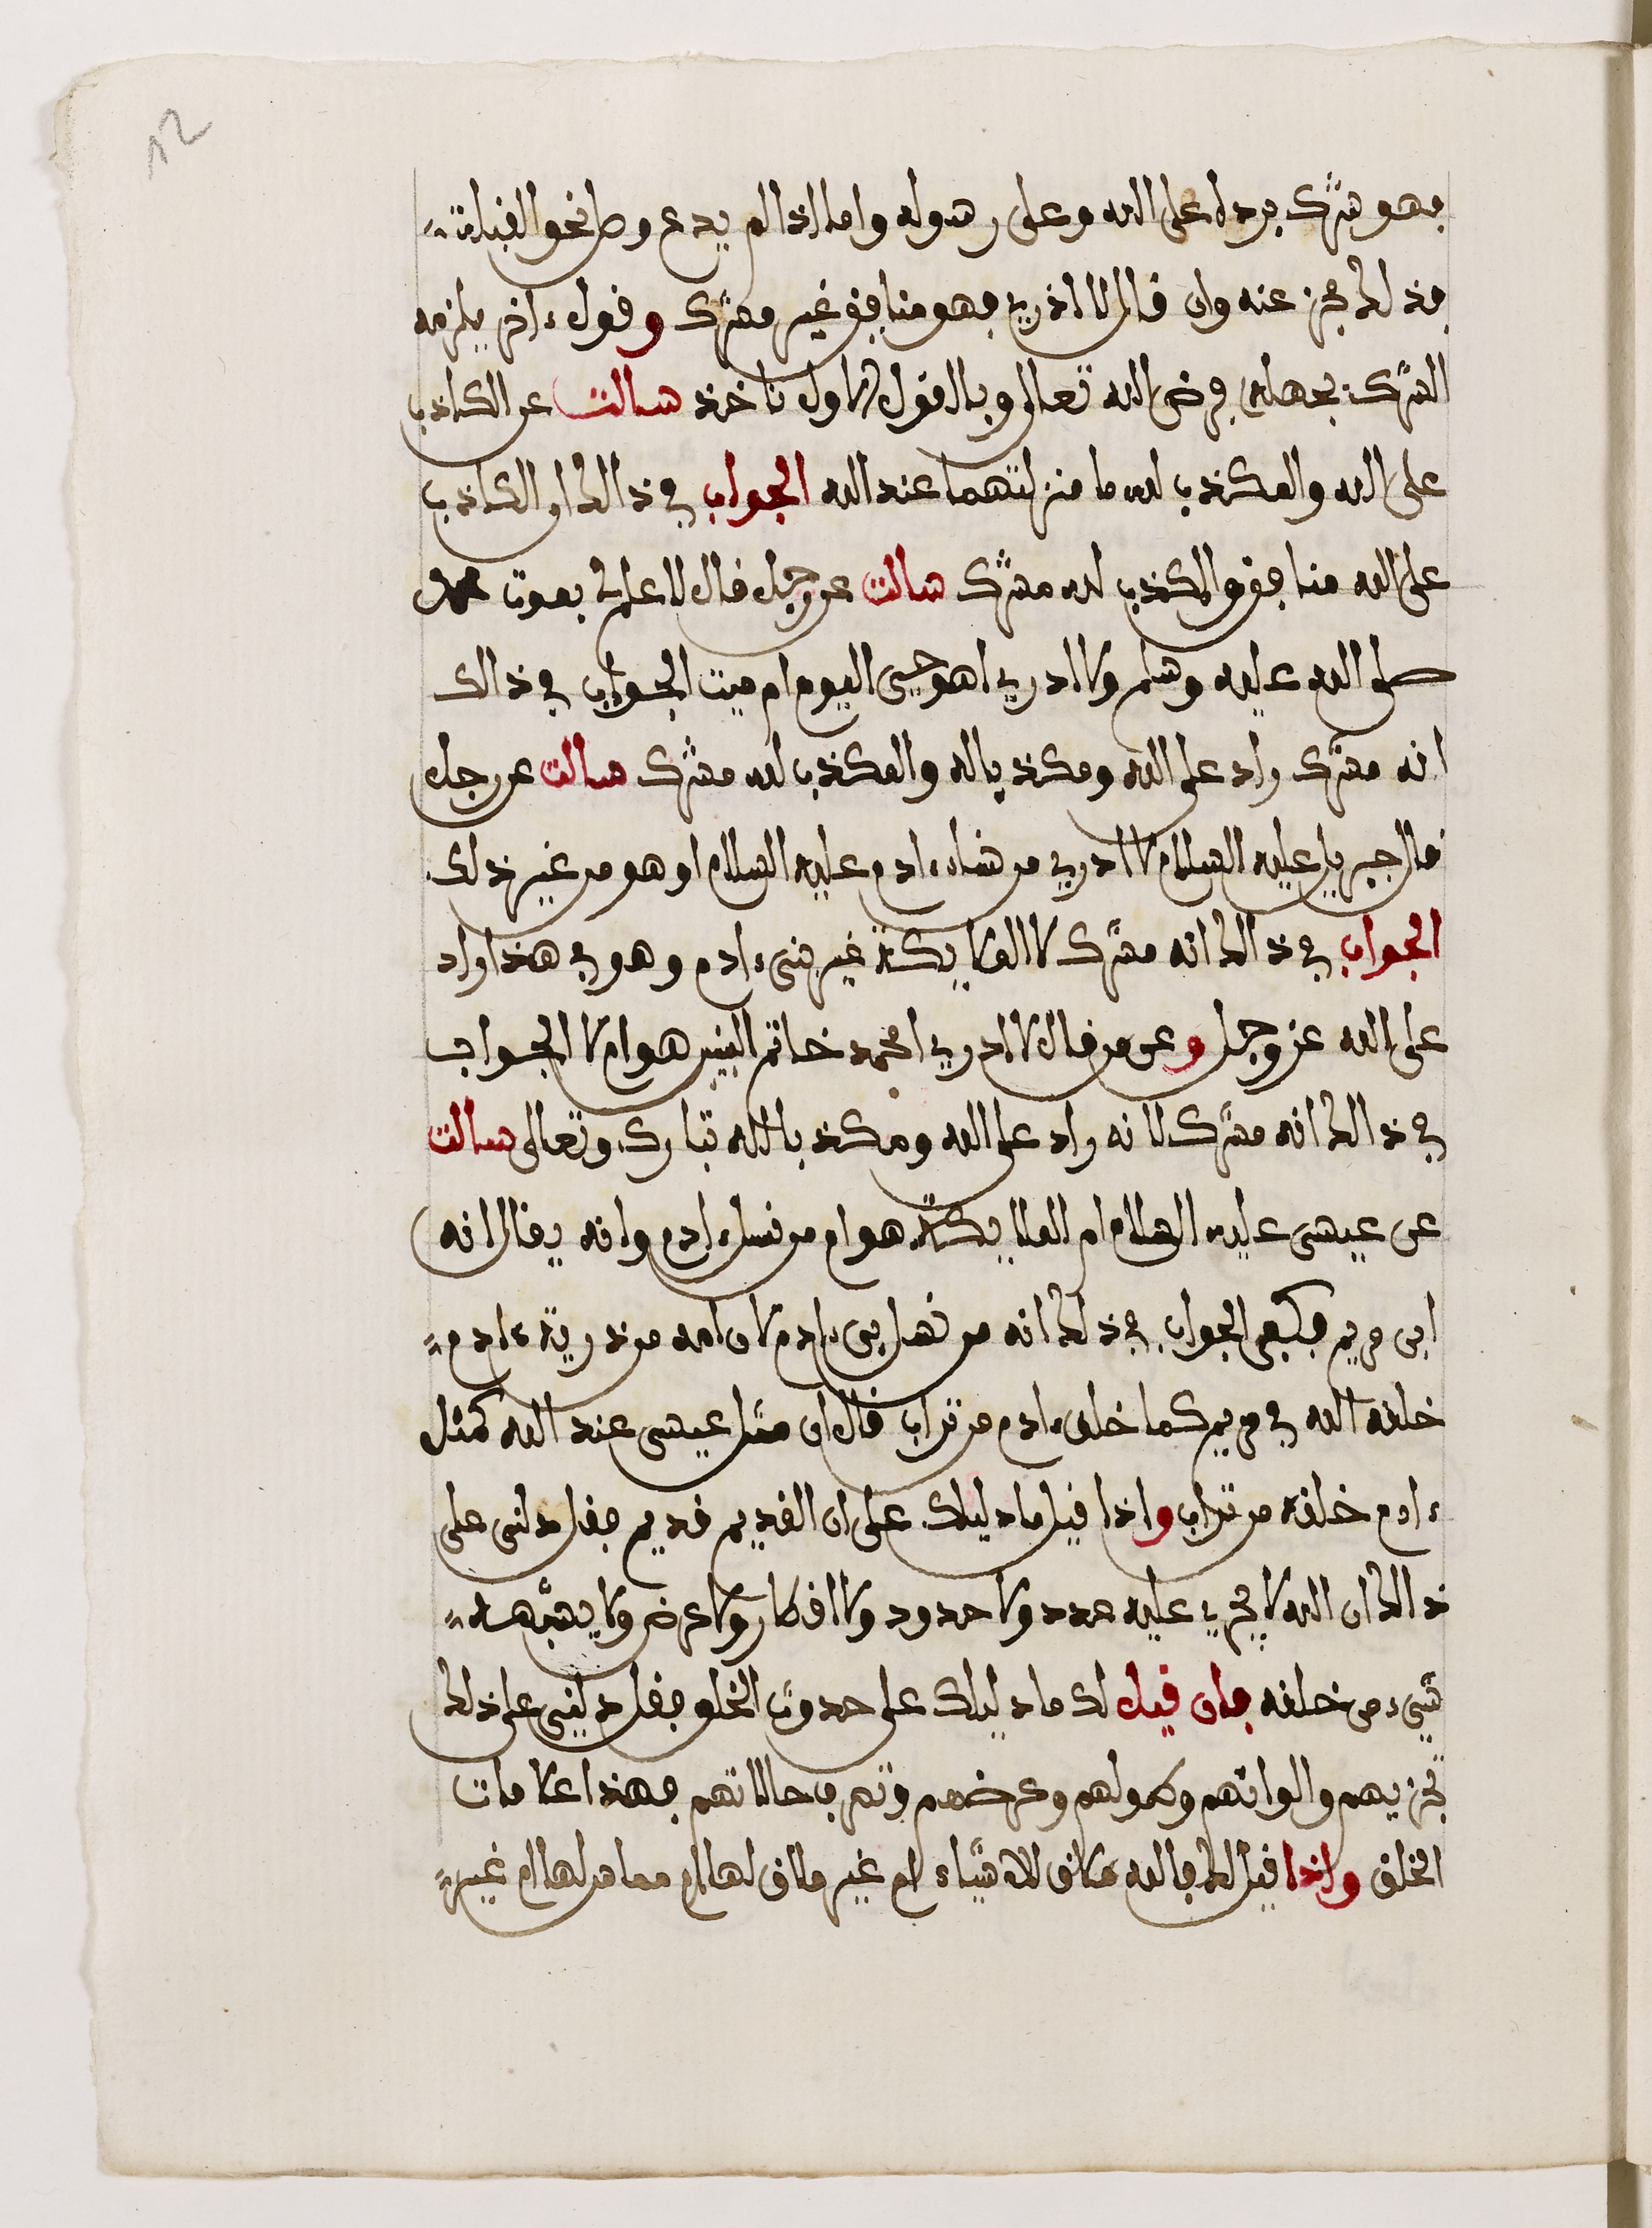 12
فهو شرك برده على الله وعلى رسوله واما اذا لم يدع وصلى نحو القبلة
فذلك مجز عنه وان قال لا اذري فهو منافق غير مشرك وقول ءاخر يلزمه
الشرك بجهله فرض الله تعالى وبالقول الاول ناخذ سالت عن الكاذب
على الله والمكذب لله ما منزلتهما عند الله الجواب في ذالك ان الكاذب
على الله منافق والمكذب لله مشرك سالت عن رجل قال لا علم لي بموت محمد
صلى الله عليه وسلم ولا ادري اهو حيى اليوم ام ميت الجواب في ذالك
انه مشرك راد على الله ومكذب له والمكذب لله مشرك سالت عن رجل
قال جبريل عليه السلام لا ادري من نسل ءادم عليه السلام او هو من غير ذلك
الجواب في ذالك انه مشرك لا الملايكة غير بني ءادم وهو في هذا راد
على الله عز وجل وعن من قال لا ادري امحمد خاتم النبيين هو ام لا الجواب
في ذالك انه مشرك لانه راد على الله ومكذب بالله تبارك وتعالى سالت
عن عيسى عليه السلام ام الملايكة هو ام من نسل ءادم وانه يقال انه
ابن مريم فكيف الجواب في ذلك انه من نسل بني ءادم لان امه من ذرية ءادم
خلقه الله في مريم كما خلق ءادم من تراب قال ان مثل عيسى عند الله كمثل
ءادم خلقه من تراب واذا قيل ما دليلك على ان القديم قديم فقل دلني على
ذالك ان الله لا يجري عليه عدد ولا حدود ولا اقطار ولا عرض ولا يشبهه
شيء من خلقه فان قيل لك ما دليلك على حدوث الخلق فقل دلني على ذلك
تجزيهم والوانهم وطولهم وعرضهم وتصرف حالاتهم فهذا علامات
الخلق واذا قيل لك فالله ملاق للاشياء ام غير ملاق لها ام مماس لها ام غير